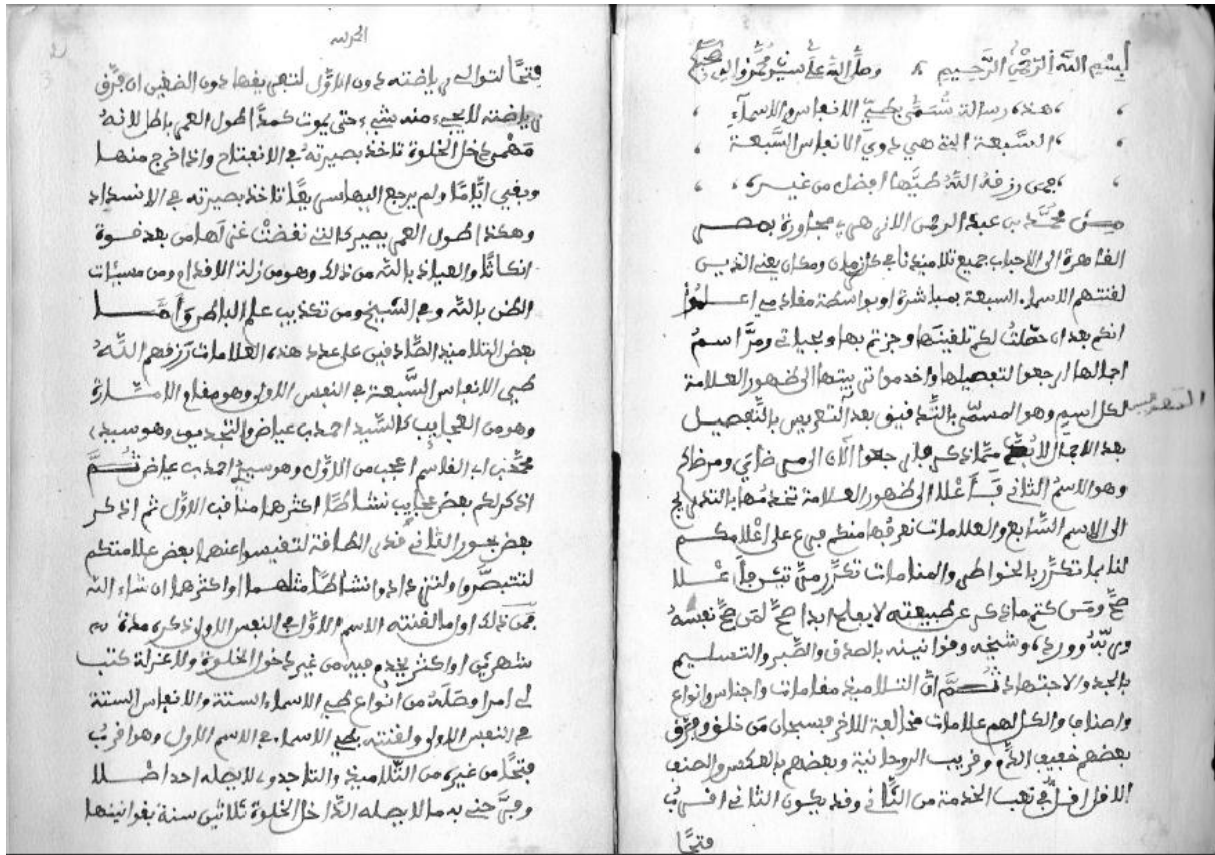 بسم الله الرحمن الرحيم وصلى الله على سيدنا محمد وءاله وصحبه
هذه رسالة تسمى بطي الانفاس والاسماء
السبعة التي هي ذوي الانفاس السبعة
فمن رزقه الله طيها افضل من غيره
من محمد بن عبد الرحمن الازهري مجاورة بمصر
القاهرة الى الاحباب جميع تلاميذنا في كل زمان ومكان يعني الذين
لقنتهم الاسماء السبعة مباشرة او بواسطة مقاديمي اعلموا
انكم بعد ان حصلت لكم تلقينها وجزتم بها
اجمالها ارجعوا لتفصيلها واخدموا ترتيبها الى ظهور العلامة
لكل اسم وهو المسمى بالتدقيق بعد التعريس بالتفصيل
بعد الاجمال لابد مما ذكر
وهو الاسم الثاني الى ظهور العلامة
الى الاسم السابع والعلامات نعرفها منكم
لنا بما تكرر بالخواطر والمنامات تكرر
صح ومن كتم ما ذكر عن طبيعته لا يفلح ابدا صح لمن صح نفسه
وربه وورده وشيخه وقوانينه بالصدق والصبر والتسليم
بالجد والاجتهاد ثم ان التلاميذ مقامات واجناس وانواع
واصناف والكل لهم علامات مخالفة للاخر فسبحان من خلق وفرق
بعضهم خفيف الدم وقريب الروحانية وبعضهم بالعكس والصنف
الاول اقل في تعب الخدمة من الثاني وقد يكون الثاني اقرب
فتحا
فتحا لتوالي رياضته دون الاول
رياضته لا يجيء منه شيء حتى يموت كمدا اطول العمى باطل لانه
مهما دخل الخلوة تاخذ بصيرته في الانفتاح واذا خرج منها
وبقي اياما ولم يرجع اليها سريعا تاخذ بصيرته في الانسداد
وهكذا طول العمر يصير كالتي نقضت غزلها من بعد قوة
انكاثا والعياذ بالله من ذلك وهو من زلة الاقدام ومن سيئات
الظن بالله وفي الشيخ ومن تكذيب علم الباطن
بعض التلاميذ الصادقين على عدد هذه العلامات رزقهم الله
طي الانفاس السبعة في النفس الاولى وهو مقام الامارة
وهو من العجايب كالسيد احمد بن عياض
محمد بن ابي القاسم اعجب من الاول وهو سيدي احمد بن عياض ثم
اذكر لكم بعض عجايب نشاطا اكثرها مناقب الاول ثم اذكر
بعض بحور الثاني قدر الطاقة لتقيسوا عنهما بعض علامتكم
لتتبصروا ولتزدادوا نشاطا مثلهما او اكثرها ان شاء الله
فمن ذلك اول ما لقنته الاسم الاول في النفس الاولى ذكره مدة
شهرين او اكثر يخدم فيه من غير دخول الخلوة والاعزلة كتب
لي امرا وصله من انواع طي الاسماء الستة والانفاس الستة
في النفس الاولى ولقنته بطي الاسماء في الاسم الاول وهو اقرب
فتحا من غيره من التلاميذ لا يصله احد اصلا
ما لا يصله الداخل الخلوة ثلاثين سنة بقوانينها